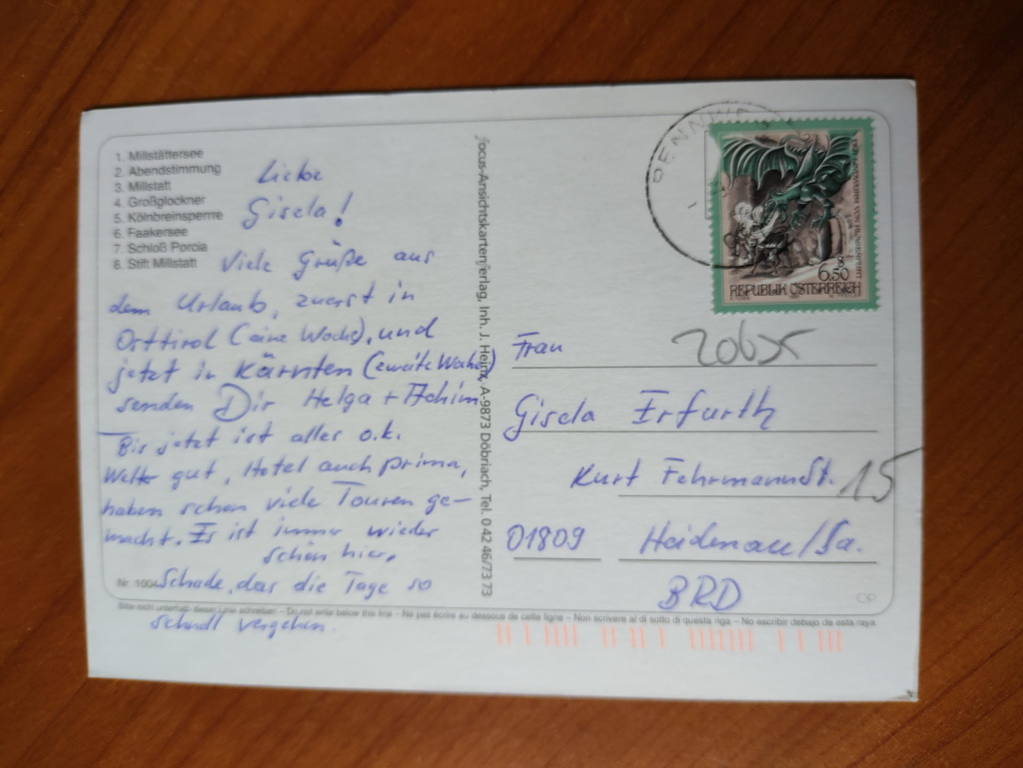 1. Millstättersee
2. Abendstimmung
3. Millstatt
4. Großglockner
5. Kölnbreinsperrre
6. Faakersee
7. Schloß Porcia
8. Stift Millstatt
Liebe
Gisela!
Viele Grüße aus
dem Urlaub, zuerst in
Osttirol (eine Woche), und
jetzt in Kärnten (zweite Woche)
senden Dir Helga + Achim
Bis jetzt ist alles o.k.
gut, Hotel auch prima,
haben schon viele Touren ge-
macht. Es ist immer wieder
schön hier.
Nr. 1004
Schade, das die Tage so
schnell vergehen.
Bitte nicht unterhalb dieser Linie schreiben – Do not write below this line - Ne pas écrire au dessous de cette ligne – Non scrivere al di sotto di questa riga – No escribir debajo de esta raya
focus-Ansichtskartenverlag, Inh. J. Heinz, A-9873 Döbriach, Tel. 0 42 46/73 73
S 6.50
REPUBLIK ÖSTERREICH
20635
Frau
Gisela Erfurth
Kurt Fehrmannst. 15
01809 Heidenau/Sa.
BRD